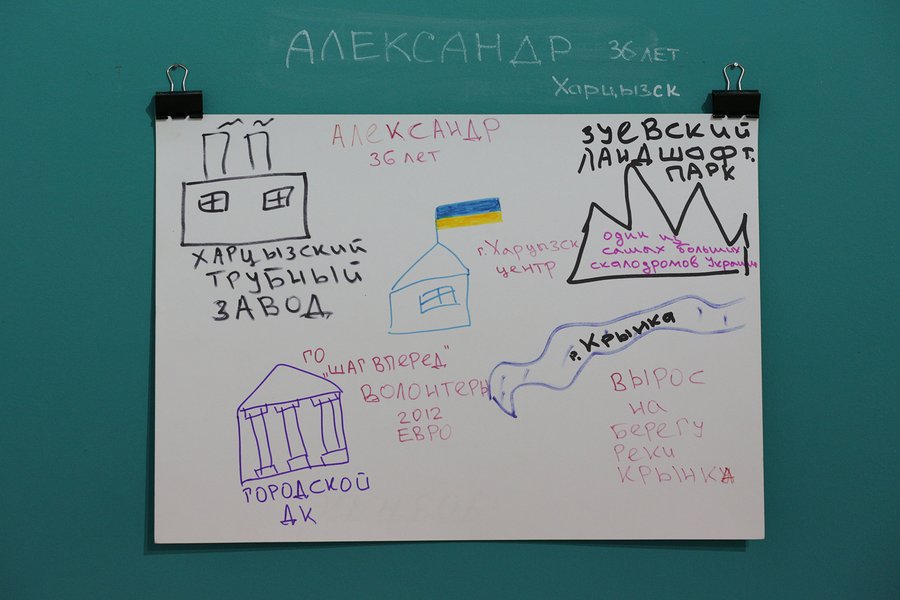 АЛЕКСАНДР 36 лет
Харцызск
АЛЕКСАНДР
36 лет
ЗУЕВСКИЙ
ЛАНДШАФТ.
ПАРК
один из
самых больших
скалодромов Украины
ХАРЦЫЗСКИЙ
ТРУБНЫЙ
ЗАВОД
г. Харцызск
центр
г. Крынка
ГО "ШАГ ВПЕРЕД"
ВОЛОНТЕРЫ
2012
ЕВРО
ВЫРОС
на
берегу
реки
КРЫНКА
ГОРОДСКОЙ
ДК